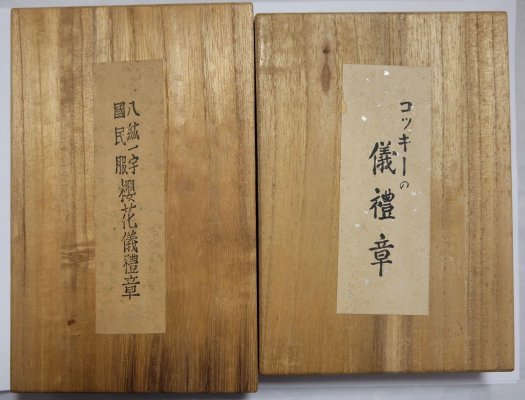 八紘一宇
國民服
櫻花儀禮章
コッキーの
儀禮章